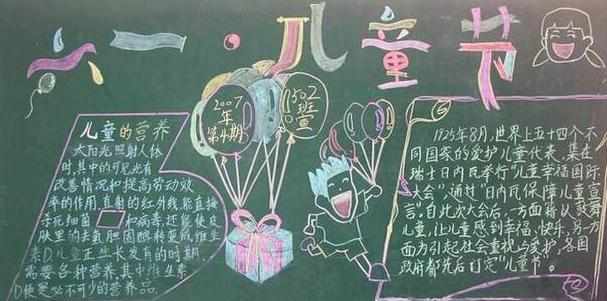 六一·儿童节
2007
年
第4期
1502
班
宣
儿童的营养
太阳光照射人体
时,其中的可见光有
改善情况和提高劳动效
率的作用,直射的红外线能直接
杀死细菌和病毒,还能使皮
肤里的去氧胆固醇转变成维生
素D,儿童正生长发育的时期,
需要各种营养,其中维生素
D便是必不可少的营养品.
1925年8月,世界上五十四个不
同国家的爱护儿童代表,集在
瑞士日内瓦举行"儿童幸福国际
大会",通过"日内瓦保障儿童宣
言",自此次大会后,一方面藉以鼓舞
儿童,让儿童感到幸福、快乐,另一方
面为引起社会重视与爱护,各国
政府都先后订定"儿童节"。